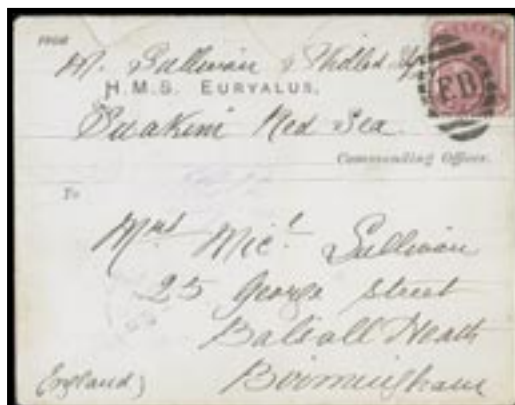 FROM
M. Sullivan
H.M.S. EURYALUS.
Suakim Red Sea.
Commanding Officer.
To
Mrs Micl Sullivan
25 George Street
Balsall Heath
(England) Birmingham